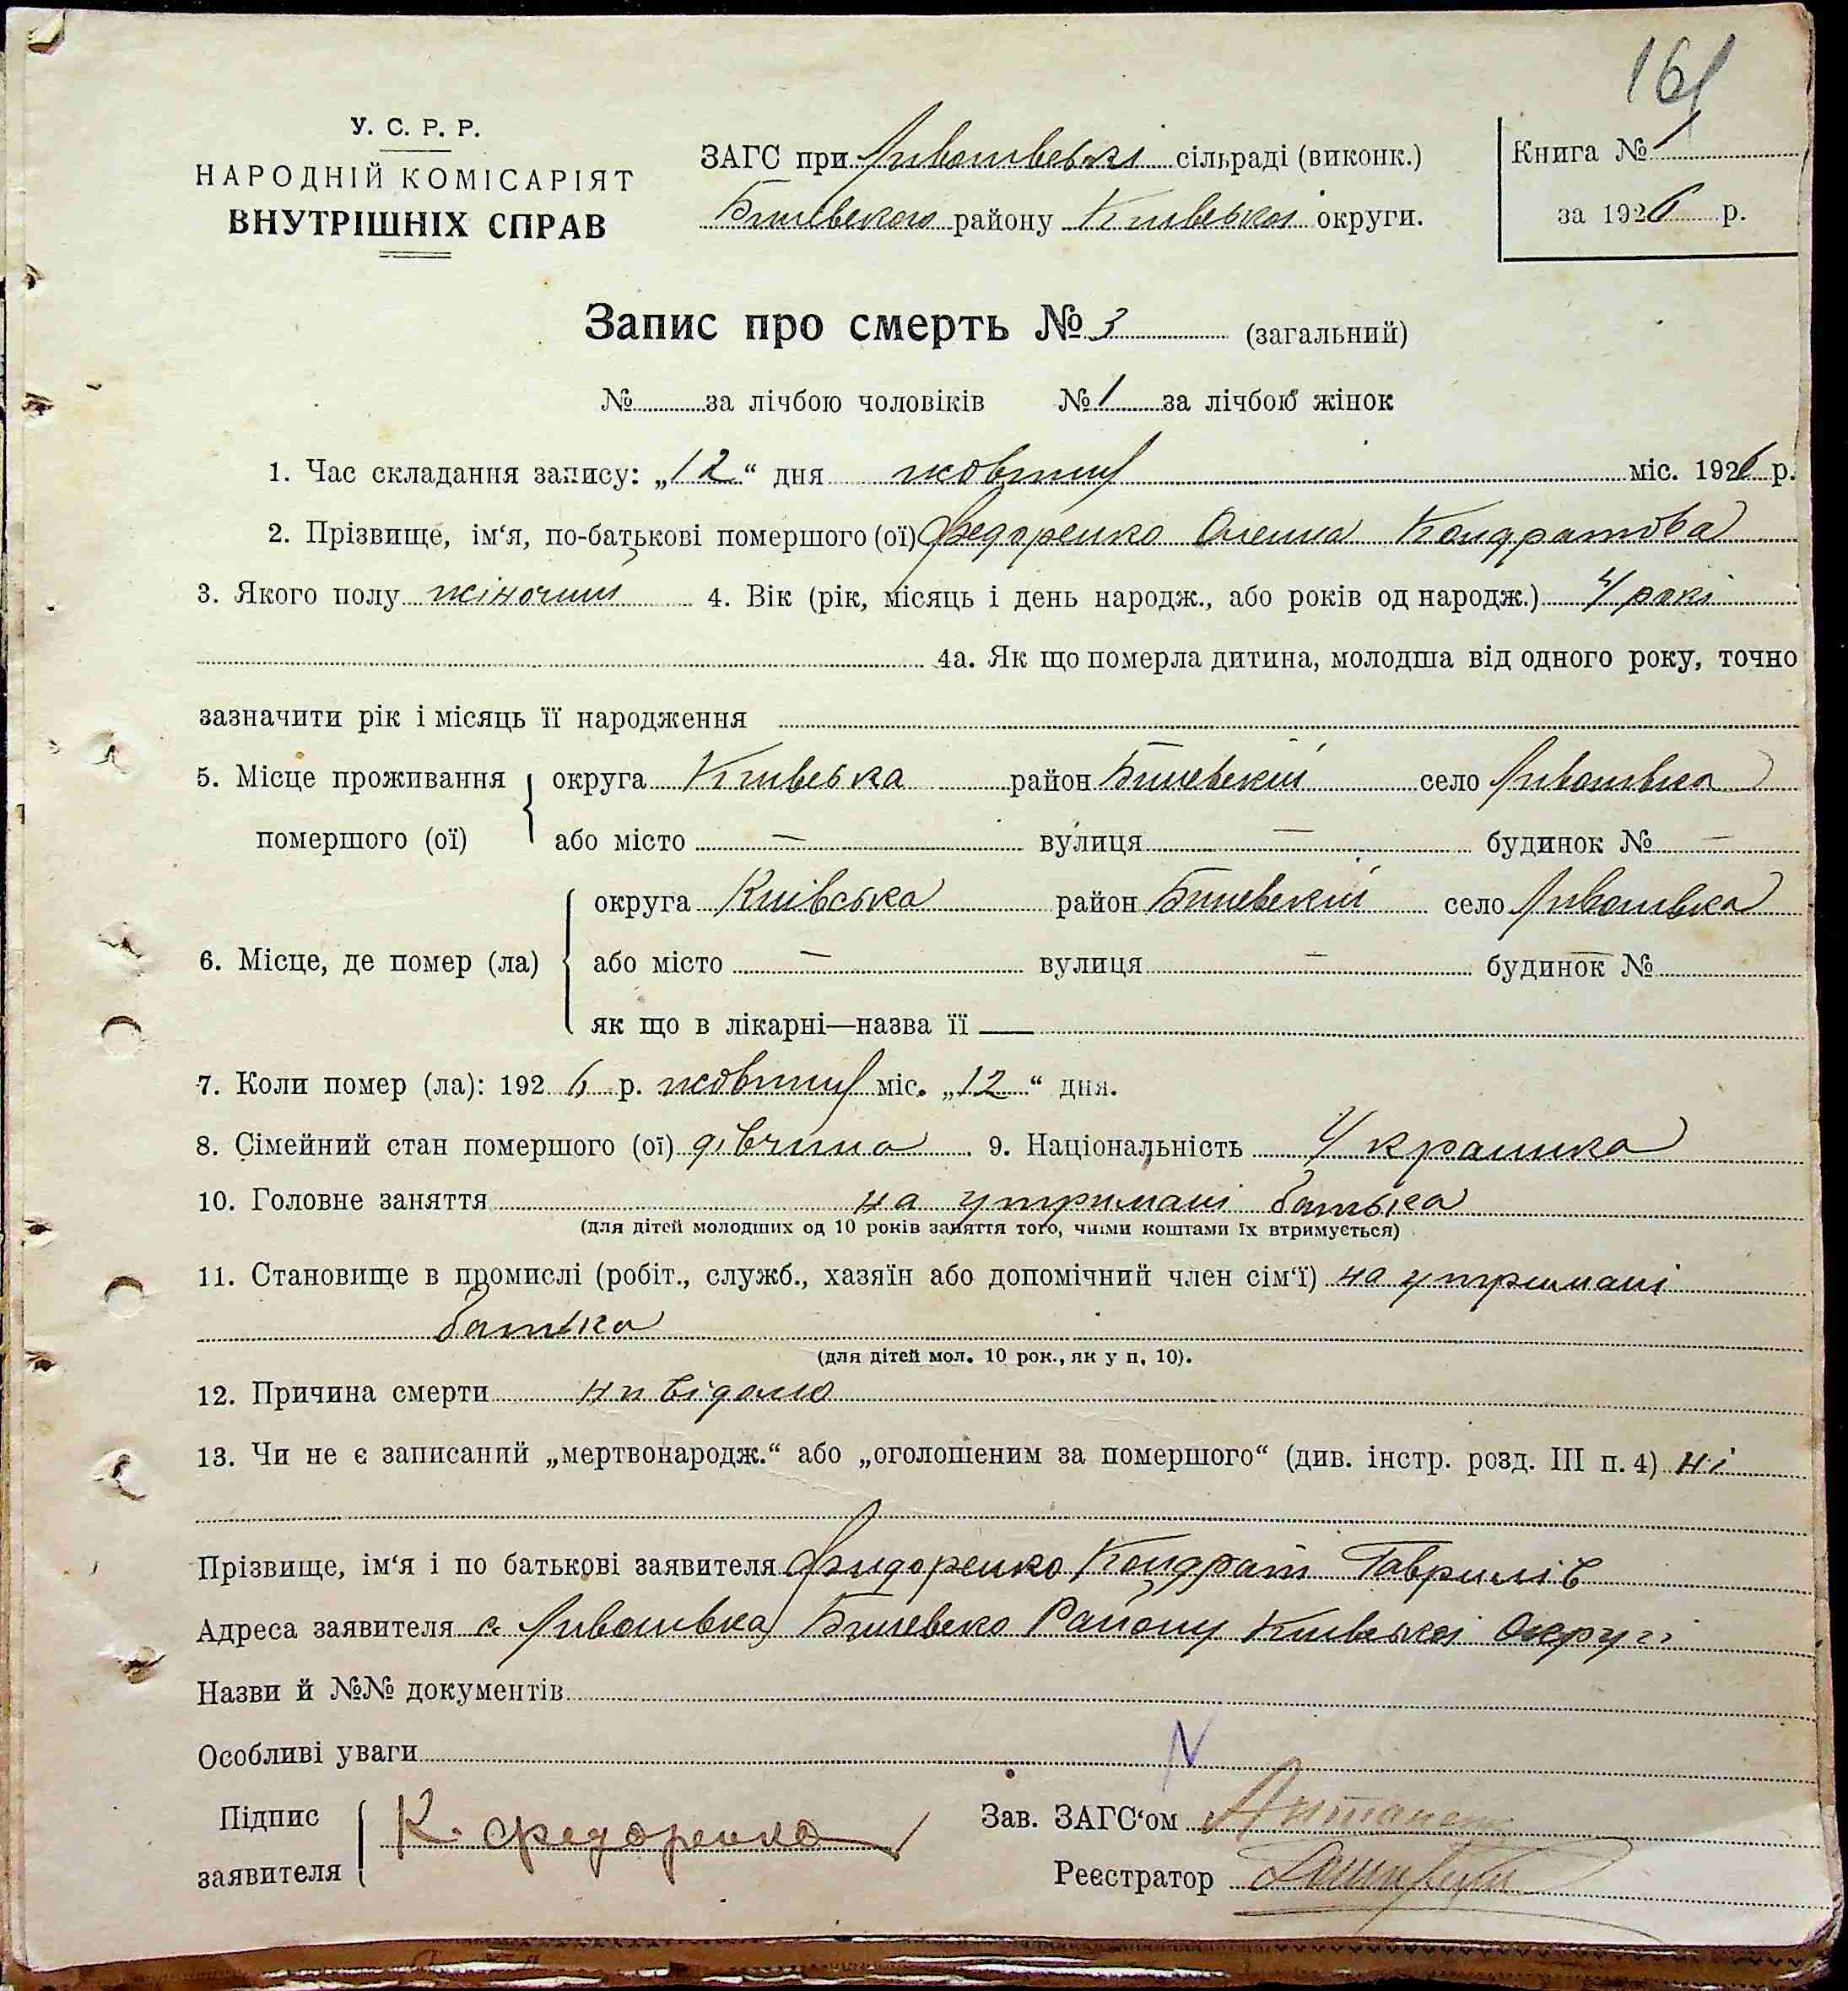 161
У. С. Р. Р.
НАРОДНІЙ КОМІСАРІЯТ
ВНУТРІШНІХ СПРАВ
ЗАГС при Ливонивські сільраді (виконк.)
Бишевского району Київської округи.
Книга № 1
за 1926 р.
Запис про смерть № 3 (загальний)
№ за лічбою чоловіків № 1 за лічбою жінок
1. Час складання запису: „12“ дня жовтня міс. 1926 р.
2. Прізвище, ім‘я, по-батькові помершого (ої) Федоренко Олена Кондратова
3. Якого полу жіночий 4. Вік (рік, місяць і день народж., або років од народж.) 4 рокі
4а. Як що померла дитина, молодша від одного року, точно
зазначити рік і місяць її народження
5. Місце проживання округа Київська район Бишевский село
помершого (ої) або місто — вулиця — будинок № —
6. Місце, де помер (ла) округа Київська район Бишевский село
або місто — вулиця — будинок №
як що в лікарні—назва її —
7. Коли помер (ла): 1926 р. жовтня міс. „12“ дня.
8. Сімейний стан помершого (ої) дівчина. 9. Національність Українка
10. Головне заняття на утримані батька
(для дітей молодших од 10 років заняття того, чиїми коштами їх втримується)
11. Становище в промислі (робіт., служб., хазяїн або допомічний член сім‘ї) на утримані
батька
(для дітей мол. 10 рок., як у п. 10).
12. Причина смерти ни відомо
13. Чи не є записаний „мертвонародж.“ або „оголошеним за помершого“ (див. інстр. розд. III п. 4) ні
Прізвище, ім‘я і по батькові заявителя Фидоренко Кондрат Гаврилів
Адреса заявителя с. Бишевско Району Київської Округі
Назви й №№ документів
Особливі уваги
Підпис заявителя К. Федоренко
Зав. ЗАГС‘ом
Реєстратор